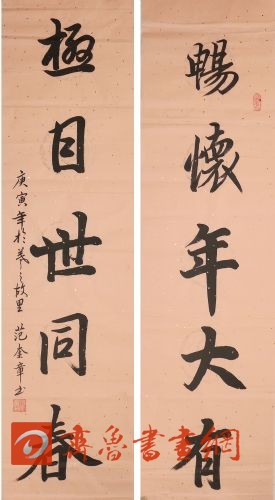 暢懷年大有
極目世同春
庚寅年於羲之故里 范奎章書
齊魯書畫網